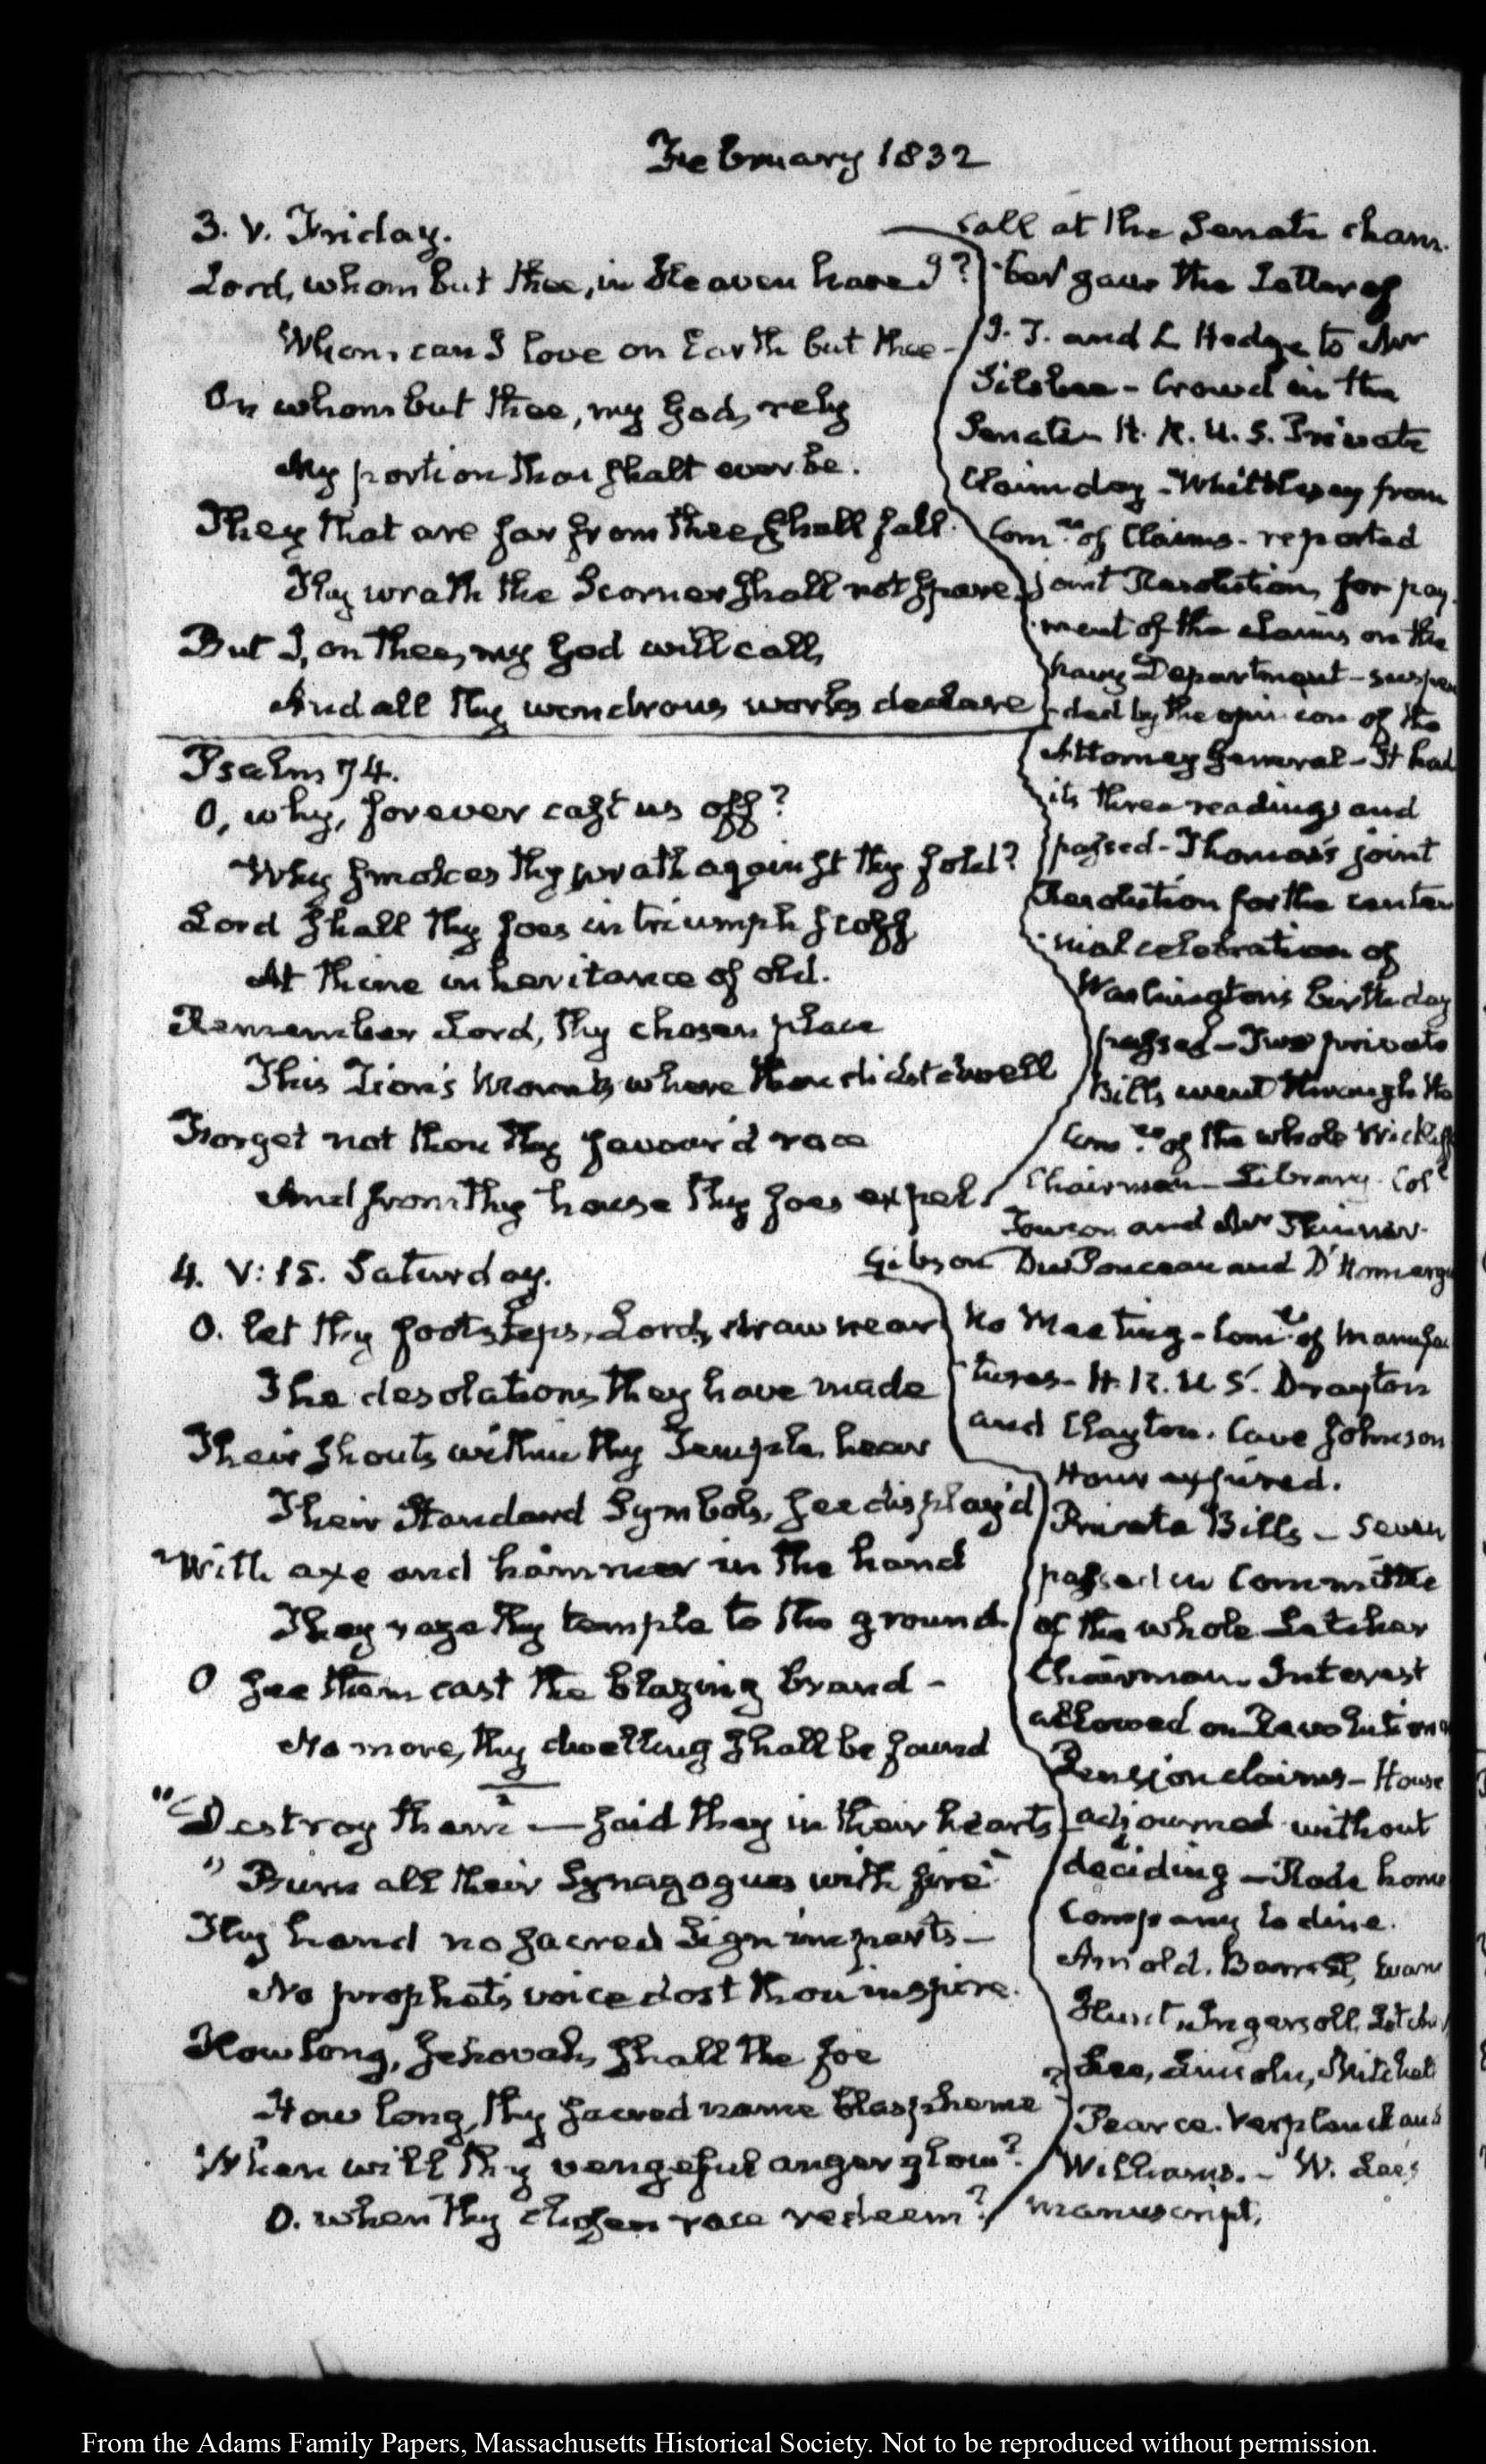 February 1832
3. V. Friday.
Lord, whom but thee, in Heaven have I?
Whom can I love on Earth but thee -
On whom but thee, my God, rely
My portion thou shalt ever be.
They that are far from thee, shall fall.
Thy wrath the Scorner shall not spare
But I, on thee, my God will call,
And all thy wondrous works declare
Psalm 74.
O, why, forever cast us off?
Why smokes thy wrath against thy fold?
Lord shall thy foes in triumph scoff
At thine inheritance of old.
Remember Lord, thy chosen place
This Zion's Mount, where thou didst dwell
Forget not thou thy favour'd race
And from thy house thy foes expel.
call at the Senate cham-
-ber gave the Letter of
I. T. and L Hedge to Mr
Silsbee - Crowd in the
Senate - H. R. U. S. Private
Claim day - Whittlesey from
Comee. of Claims - reported
joint Resolution, for pay-
-ment of the claims on the
Navy Department - suspen
-ded by the opinion of the
Attorney General - It had
its three readings and
passed - Thomas's joint
Resolution for the centen
-nial celebration of
Washington's birth day
passed - Two private
Bills went through the
Comee. of the whole Wickliff
Chairman - Library. Coll
Towson and Mr Skinner.
Gibson DuPonceau and D'Homergu
4. V:15. Saturday.
O. let thy footsteps, Lord, draw near
The desolations they have made
Their shouts within thy Temple, hear
Their Standard Symbols, see display'd
With axe and hammer in the hand
They raze thy temple to the ground.
O see them cast the blazing brand -
No more, thy dwelling shall be found
"Destroy them — said they in their hearts
"Burn all their Synagogues with fire"
Thy hand no sacred sign imparts -
No prophet's voice dost thou inspire.
How long, Jehovah, shall the foe
How long, thy sacred name blaspheme?
When will thy vengeful anger glow?
O. when thy chosen race redeem?
No Meeting - Comee. of Manufac
tures - H. R. U. S. Drayton
and Clayton. Cave Johnson
Hour expired.
Private Bills - Seven
passed in Committee
of the whole Letcher
Chairman. Interest
allowed on Revolutiona
Pension claims - House
adjourned without
deciding - Rode home
Company to dine.
Arnold. Barrett, Evans
Hunt, Ingersoll, Letcher
Lee, Lincoln, Mitchell
Pearce. Verplanck and
Williams. - W. Lee's
manuscript.
From the Adams Family Papers, Massachusetts Historical Society. Not to be reproduced without permission.